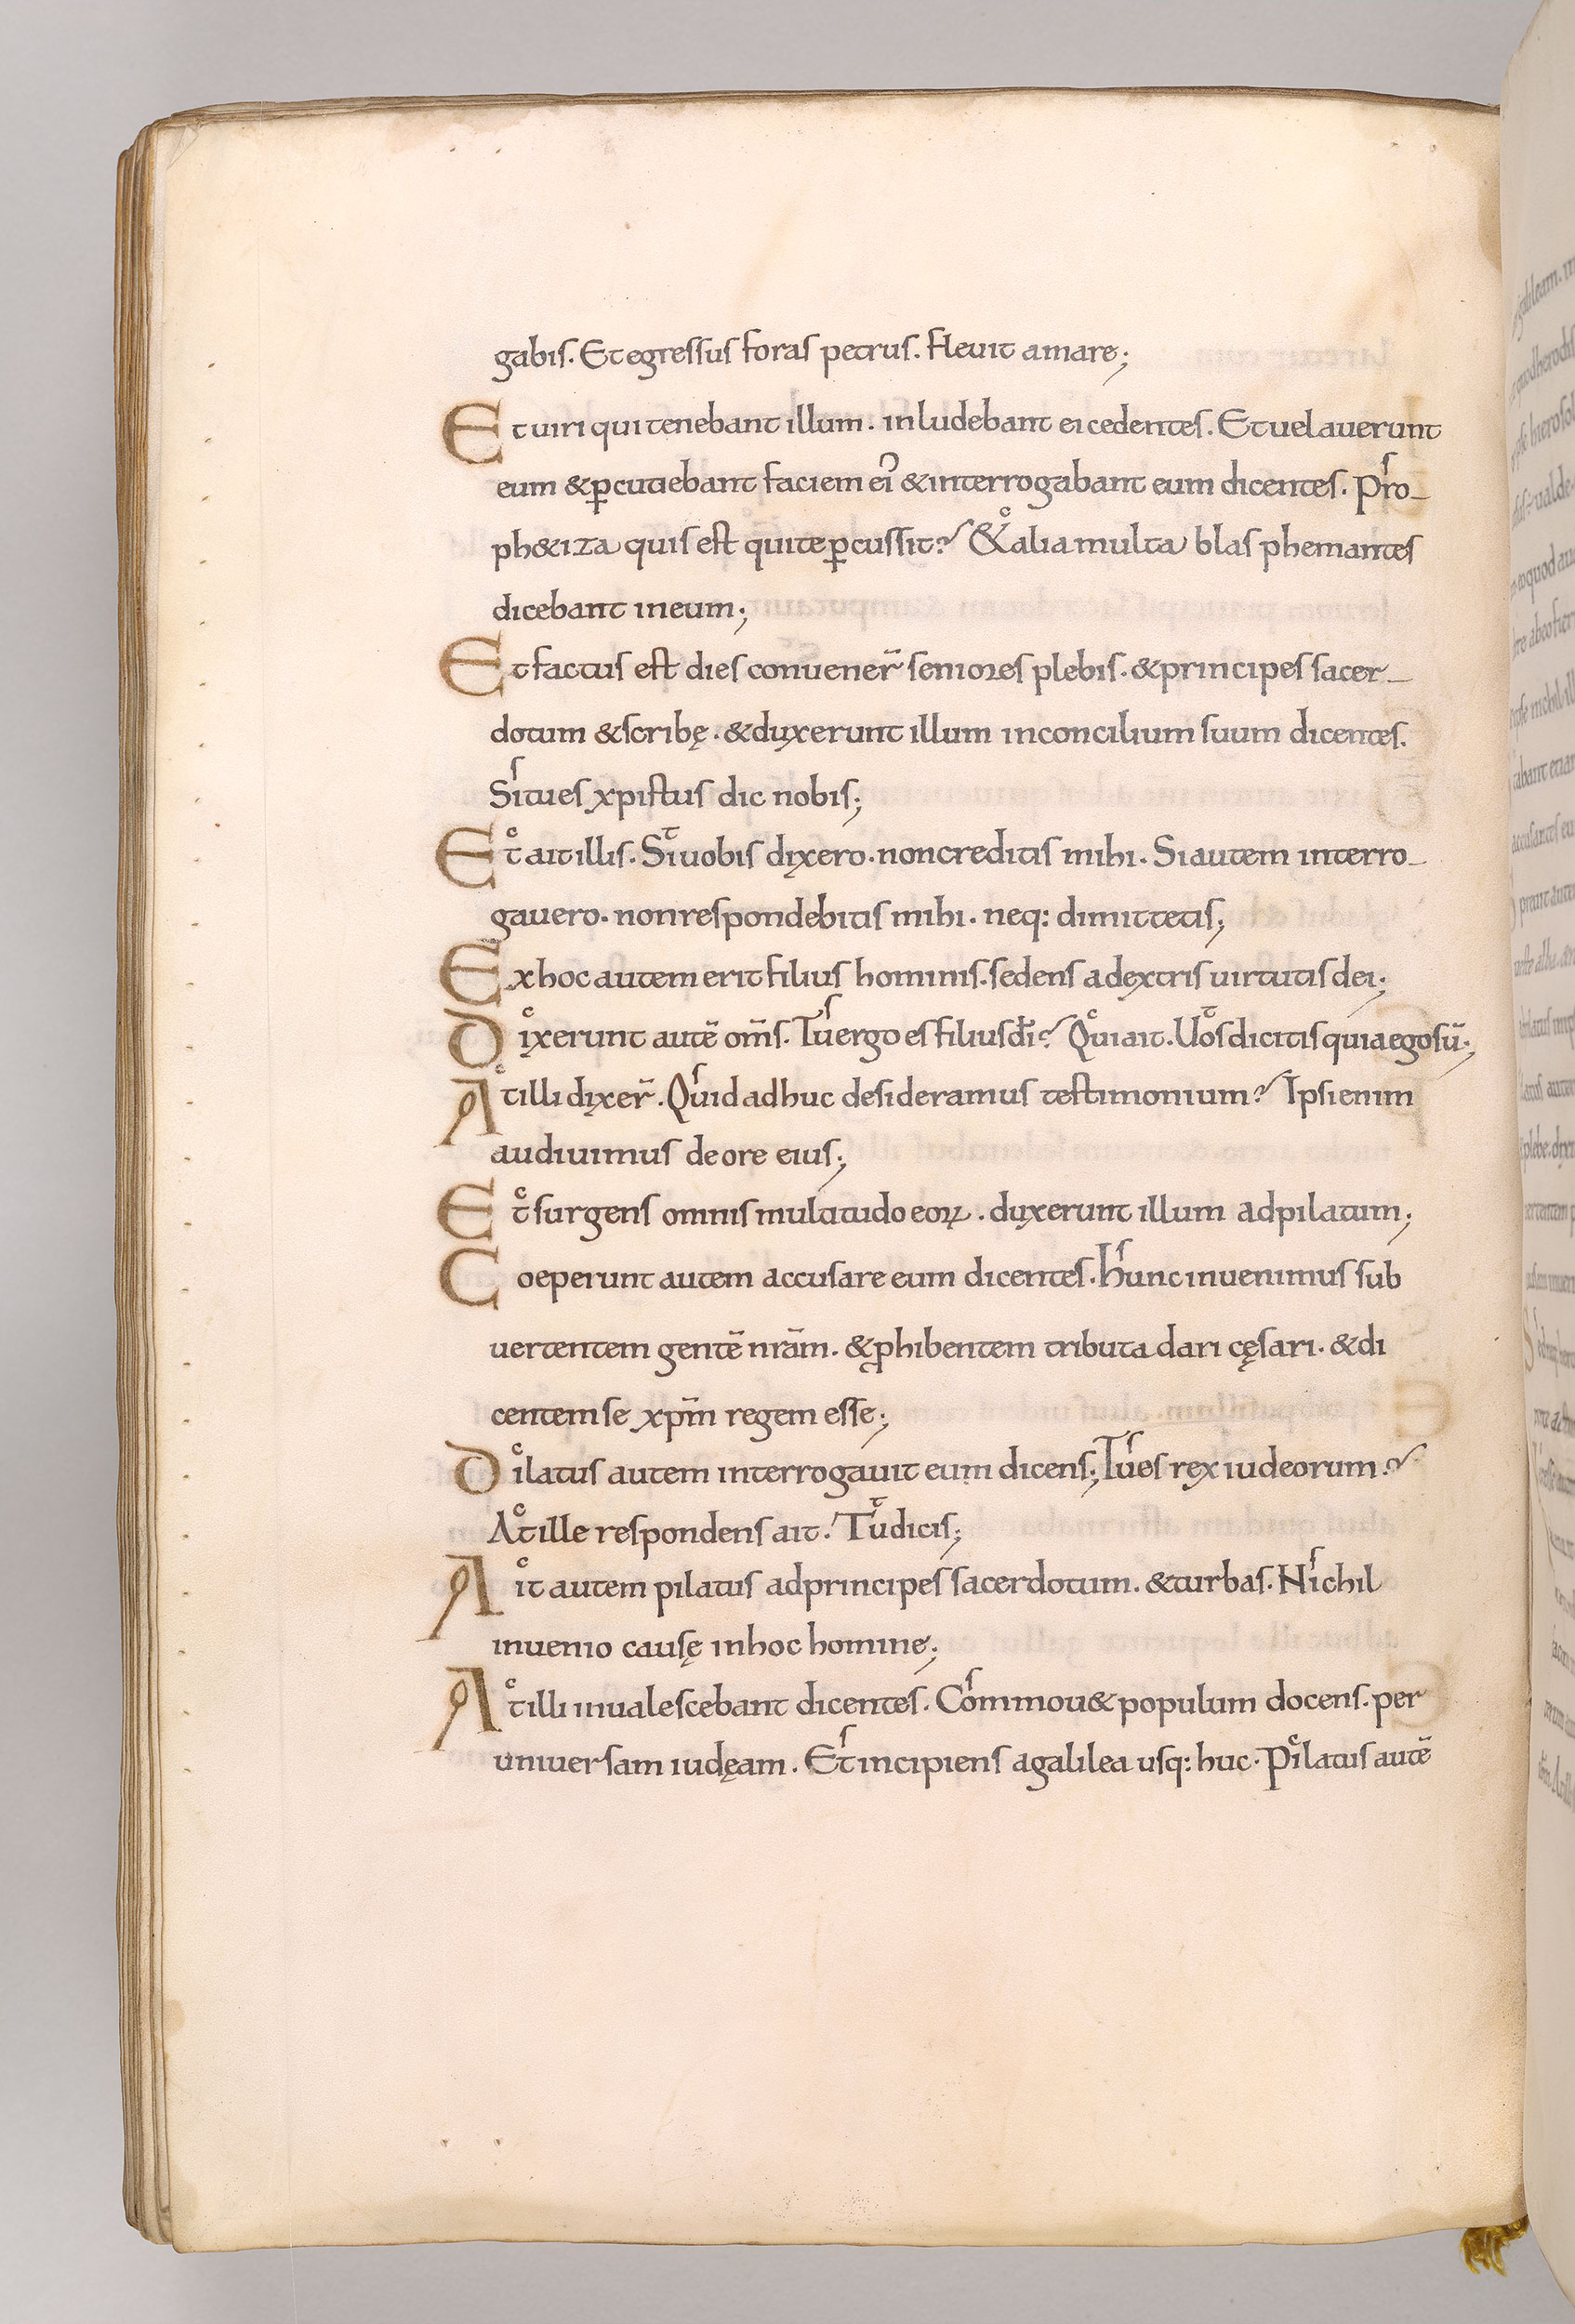 gabis. Et egressus foras petrus. flevit amare;
Et uiri qui tenebant illum. inludebant ei cedentes. Et uelauerunt
eum & p̱cutiebant faciem ei᾿ & interrogabant eum dicentes. Pro-
ph&iza quis est qui te p̱cussit? & alia multa blasphemantes
dicebant in eum;
Et factus est dies conuener̄ seniores plebis. & principes sacer-
dotum & scribę. & duxerunt illum in concilium suum dicentes.
Si tu es xpistus dic nobis;
Et ait illis. Si uobis dixero. non creditis mihi. Si autem interro-
gauero. non respondebitis mihi. neq: dimittetis;
Ex hoc autem erit filius hominis. sedens a dextris uirtutis dei;
Dixerunt autē om̄s. Tu ergo es filius dī? Qui ait. Uos dicitis quia ego sū;
At illi dixer̄. Quid adhuc desideramus testimonium? Ipsi enim
audiuimus de ore eius;
Et surgens omnis multitudo eoꝝ. duxerunt illum ad pilatum;
Coeperunt autem accusare eum dicentes. Hunc inuenimus sub
uertentem gentē nrām. & ꝓhibentem tributa dari cęsari. & di
centem se xpm̄ regem esse;
Dilatus autem interrogauit eum dicens; Tu es rex iudeorum?
At ille respondens ait. Tu dicis;
Ait autem pilatus ad principes sacerdotum. & turbas. Nichil
inuenio causę in hoc homine;
At illi inualescebant dicentes. Commou& populum docens. per
uniuersam iudęam. Et incipiens a galilea usq: huc. Pilatus autē